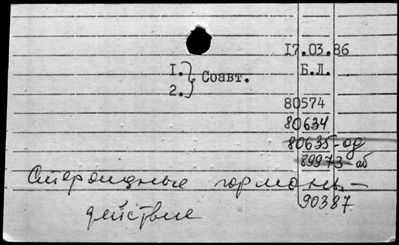 17.03.86
1. } Соавт. Б.Л.
2.
80574
80634
80635-од
89973-аб
Стероидные гормоны-
90387
действие